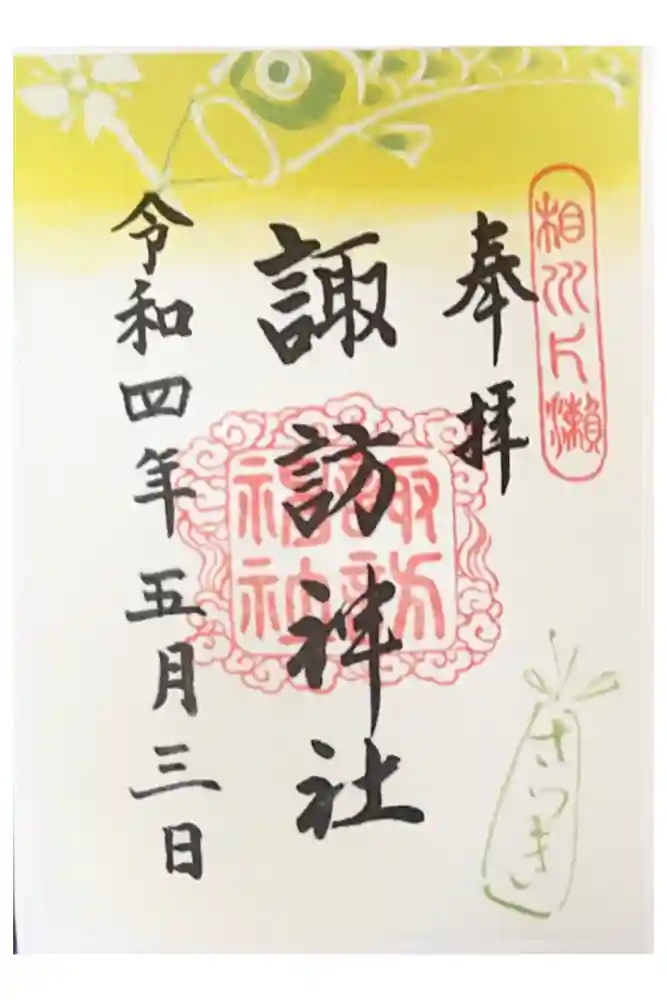 相州片瀬
奉拝
諏訪神社
諏訪神社
令和四年五月三日
さつき